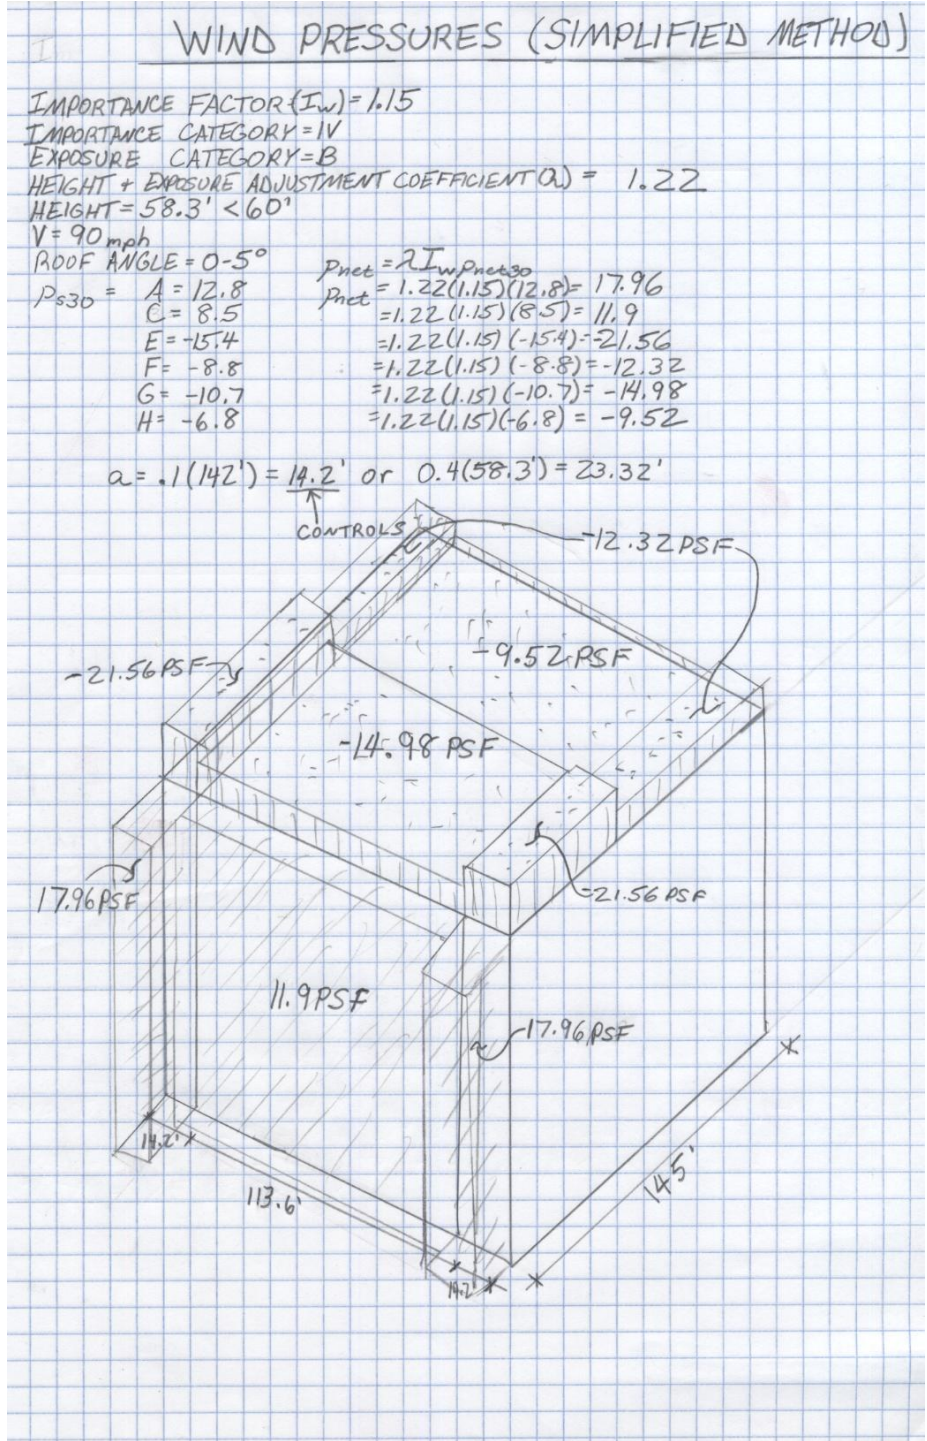 WIND PRESSURES (SIMPLIFIED METHOD)
IMPORTANCE FACTOR (Iw) = 1.15
IMPORTANCE CATEGORY = IV
EXPOSURE CATEGORY = B
HEIGHT + EXPOSURE ADJUSTMENT COEFFICIENT (λ) = 1.22
HEIGHT = 58.3' < 60'
V = 90 mph
ROOF ANGLE = 0-5° Pnet = λIwPnet30
Ps30 = A = 12.8 Pnet = 1.22(1.15)(12.8) = 17.96
C = 8.5 = 1.22(1.15)(8.5) = 11.9
E = -15.4 = 1.22(1.15)(-15.4) = -21.56
F = -8.8 = 1.22(1.15)(-8.8) = -12.32
G = -10.7 = 1.22(1.15)(-10.7) = -14.98
H = -6.8 = 1.22(1.15)(-6.8) = -9.52
a = .1(142') = 14.2' or 0.4(58.3') = 23.32'
CONTROLS
-12.32 PSF
-9.52 PSF
-21.56 PSF
-14.98 PSF
17.96 PSF
-21.56 PSF
11.9 PSF
17.96 PSF
14.2'
113.6'
145'
14.2'